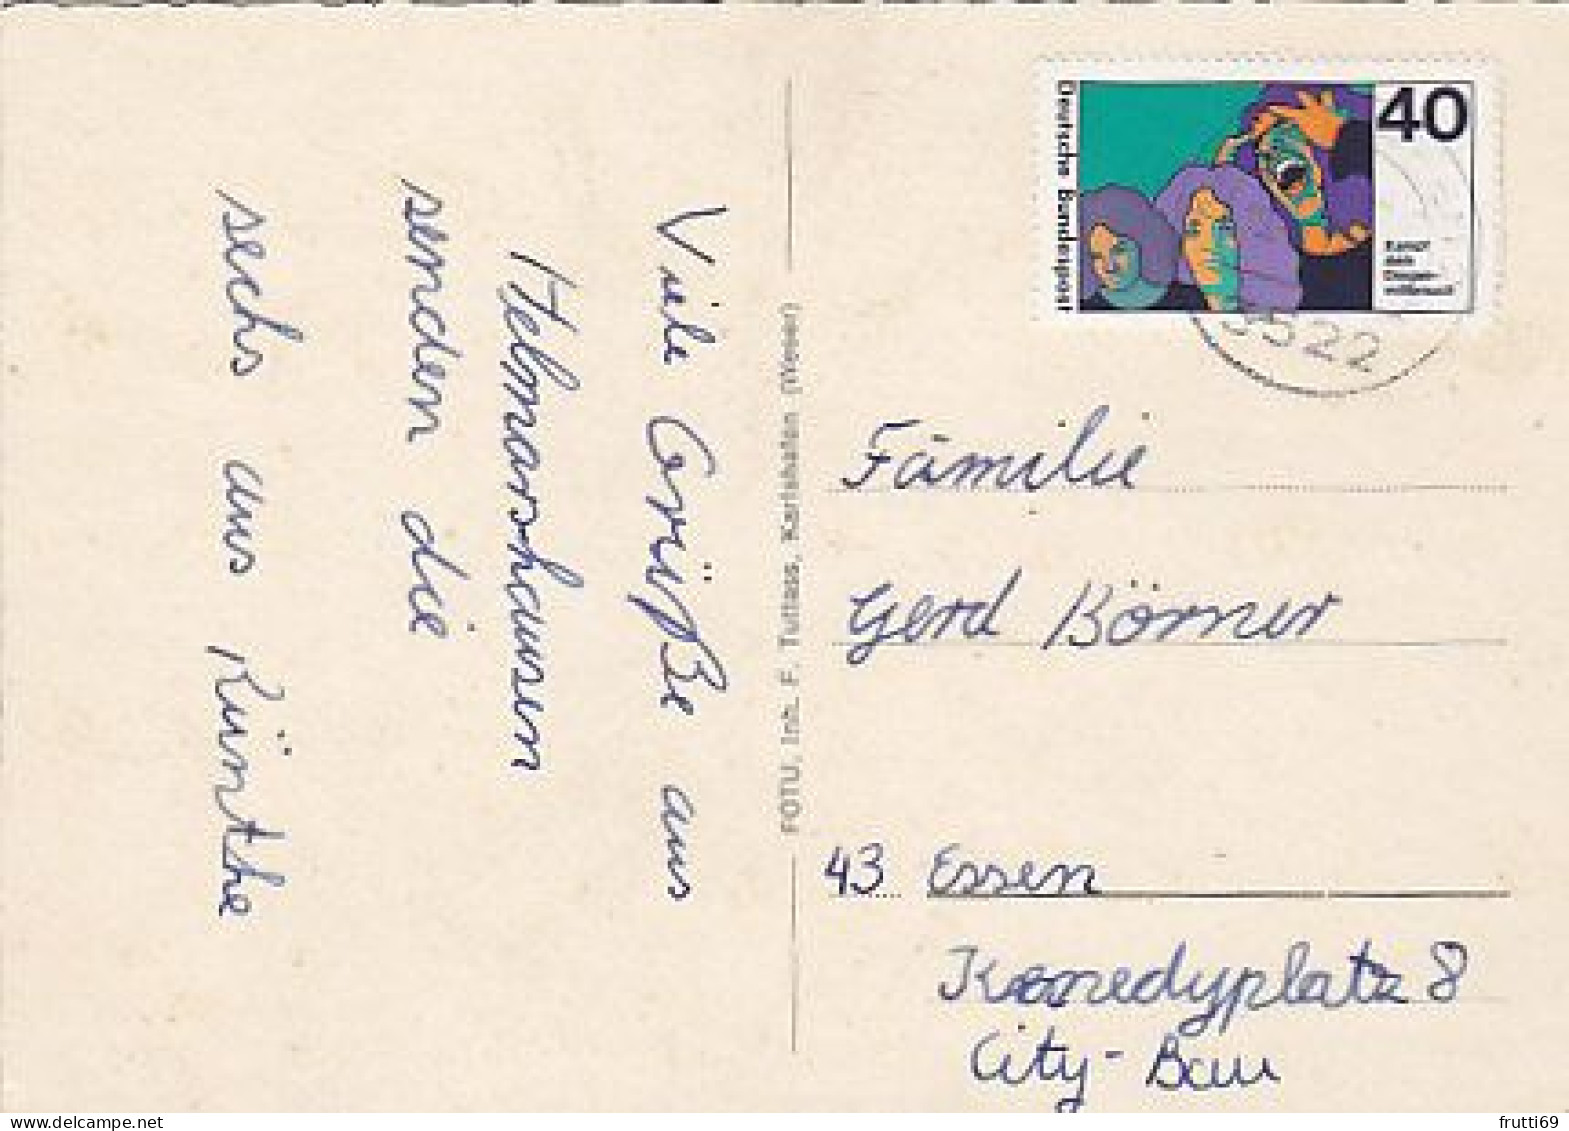 Viele Grüße aus
Helmarshausen
senden die
sechs aus Rünthe
FOTU, Inh. F. Tuttass, Karlshafen (Weser)
Deutsche Bundespost
40
Kampf
dem
Drogen-
mißbrauch
3522
Familie
Gerd Börner
43 Essen
Kennedyplatz 8
City-Bau
frutti69